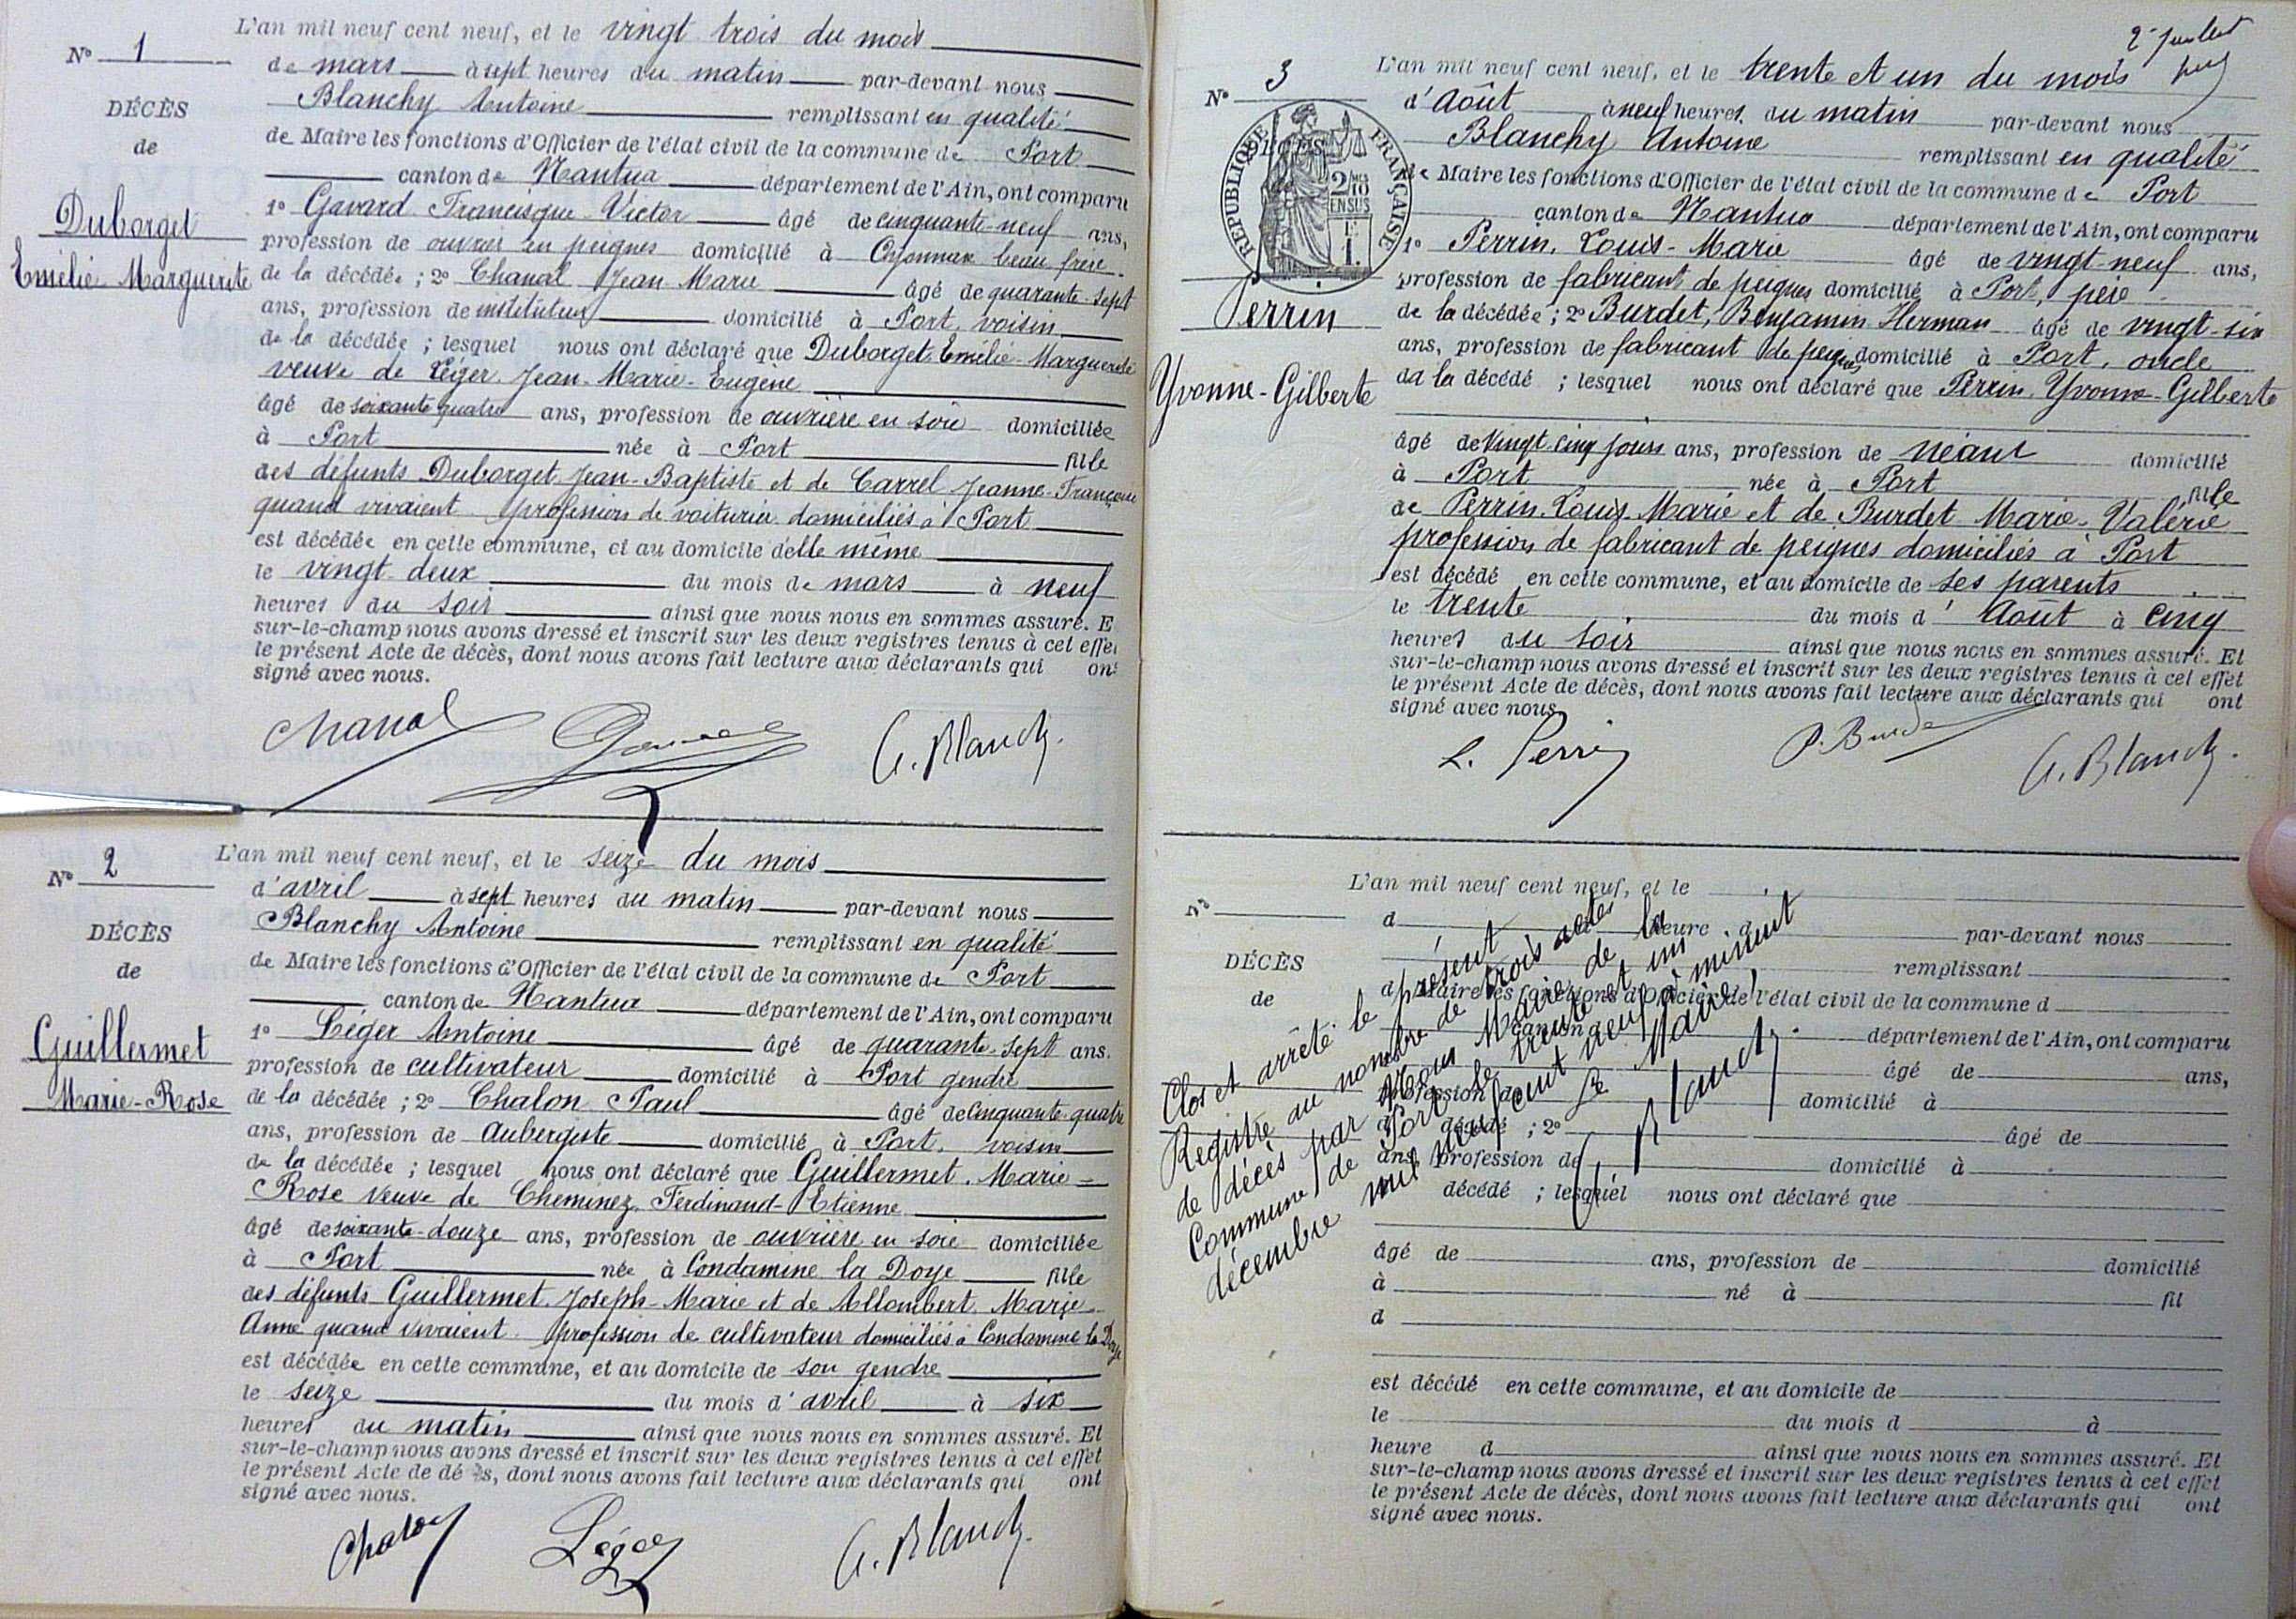 L'an mil neuf cent neuf, et le vingt trois du mois
N° 1
de mars à sept heures du matin par-devant nous
DÉCÈS
de
Blanchy Antoine remplissant en qualité
de Maire les fonctions d'Officier de l'état civil de la commune de Port
canton de Nantua département de l'Ain, ont comparu
Duborget
Emélie Marguerite
1° Gavard Francisque Victor âgé de cinquante-neuf ans,
profession de ouvrier en peignes domicilié à Oyonnax beau frère
de la décédée ; 2° Chanal Jean Marie âgé de quarante-sept
ans, profession de instituteur domicilié à Port, voisin
de la décédée ; lesquel nous ont déclaré que Duborget Emélie-Marguerite
veuve de Léger Jean-Marie-Eugène
âgé de soixante quatre ans, profession de ouvrière en soie domiciliée
à Port née à Port fille
des défunts Duborget Jean-Baptiste et de Carrel Jeanne-Françoise
quand vivaient profession de voiturier domiciliés à Port
est décédée en cette commune, et au domicile d'elle même
le vingt deux du mois de mars à neuf
heures du soir ainsi que nous nous en sommes assuré. E
sur-le-champ nous avons dressé et inscrit sur les deux registres tenus à cet effe
le présent Acte de décès, dont nous avons fait lecture aux déclarants qui on
signé avec nous.
Chanal A. Blanchy
L'an mil neuf cent neuf, et le seize du mois
N° 2
d'avril à sept heures du matin par-devant nous
DÉCÈS
de
Blanchy Antoine remplissant en qualité
de Maire les fonctions d'Officier de l'état civil de la commune de Port
canton de Nantua département de l'Ain, ont comparu
Guillermet
Marie-Rose
1° Léger Antoine âgé de quarante-sept ans.
profession de cultivateur domicilié à Port gendre
de la décédée ; 2° Chalon Paul âgé de cinquante-quatre
ans, profession de Aubergiste domicilié à Port, voisin
de la décédée ; lesquel nous ont déclaré que Guillermet, Marie-
Rose veuve de Cheminez Ferdinand-Etienne
âgé de soixante-douze ans, profession de ouvrière en soie domiciliée
à Port née à Condamine la Doye fille
des défunts Guillermet, Joseph-Marie et de Allombert Marie
Anne quand vivaient profession de cultivateur domiciliés à Condamine la Doye
est décédée en cette commune, et au domicile de son gendre
le seize du mois d'avril à six
heures du matin ainsi que nous nous en sommes assuré. Et
sur-le-champ nous avons dressé et inscrit sur les deux registres tenus à cet effet
le présent Acte de dé s, dont nous avons fait lecture aux déclarants qui ont
signé avec nous.
Chalon Léger A. Blanchy
2 juillet
L'an mil neuf cent neuf, et le trente et un du mois
N° 3
d'Août à neuf heures du matin par-devant nous
RÉPUBLIQUE FRANÇAISE
2/10 EN SUS
1f.
Blanchy Antoine remplissant en qualité
de Maire les fonctions d'Officier de l'état civil de la commune de Port
canton de Nantua département de l'Ain, ont comparu
Perrin
Yvonne-Gilberte
1° Perrin, Louis-Marie âgé de vingt-neuf ans,
profession de fabricant de peignes domicilié à Port, père
de la décédée ; 2° Burdet, Benjamin Herman âgé de vingt-six
ans, profession de fabricant de peignes domicilié à Port, oncle
de la décédé ; lesquel nous ont déclaré que Perrin, Yvonne-Gilberte
âgé de Vingt cinq jours ans, profession de néant domicilié
à Port née à Port fille
de Perrin Louis-Marie et de Burdet Marie-Valérie
profession de fabricant de peignes domiciliés à Port
est décédé en cette commune, et au domicile de ses parents
le trente du mois d'Août à cinq
heures du soir ainsi que nous nous en sommes assuré. Et
sur-le-champ nous avons dressé et inscrit sur les deux registres tenus à cet effet
le présent Acte de décès, dont nous avons fait lecture aux déclarants qui ont
signé avec nous.
L. Perrin A. Blanchy
L'an mil neuf cent neuf, et le
N°
d heure d par-devant nous
DÉCÈS
de
remplissant
d Maire les fonctions d'Officier de l'état civil de la commune d
canton d département de l'Ain, ont comparu
âgé de ans,
profession de domicilié à
d décédé ; 2° âgé de
ans, profession de domicilié à
décédé ; lesquel nous ont déclaré que
âgé de ans, profession de domicilié
à né à fil
d
est décédé en cette commune, et au domicile de
le du mois d à
heure d ainsi que nous nous en sommes assuré. Et
sur-le-champ nous avons dressé et inscrit sur les deux registres tenus à cet effet
le présent Acte de décès, dont nous avons fait lecture aux déclarants qui ont
signé avec nous.
Clos et arrêté le présent
Registre au nombre de trois actes
de décès par Nous Maire de la
Commune de Port le trente et un
décembre mil neuf cent neuf à minuit
Le Maire,
A. Blanchy